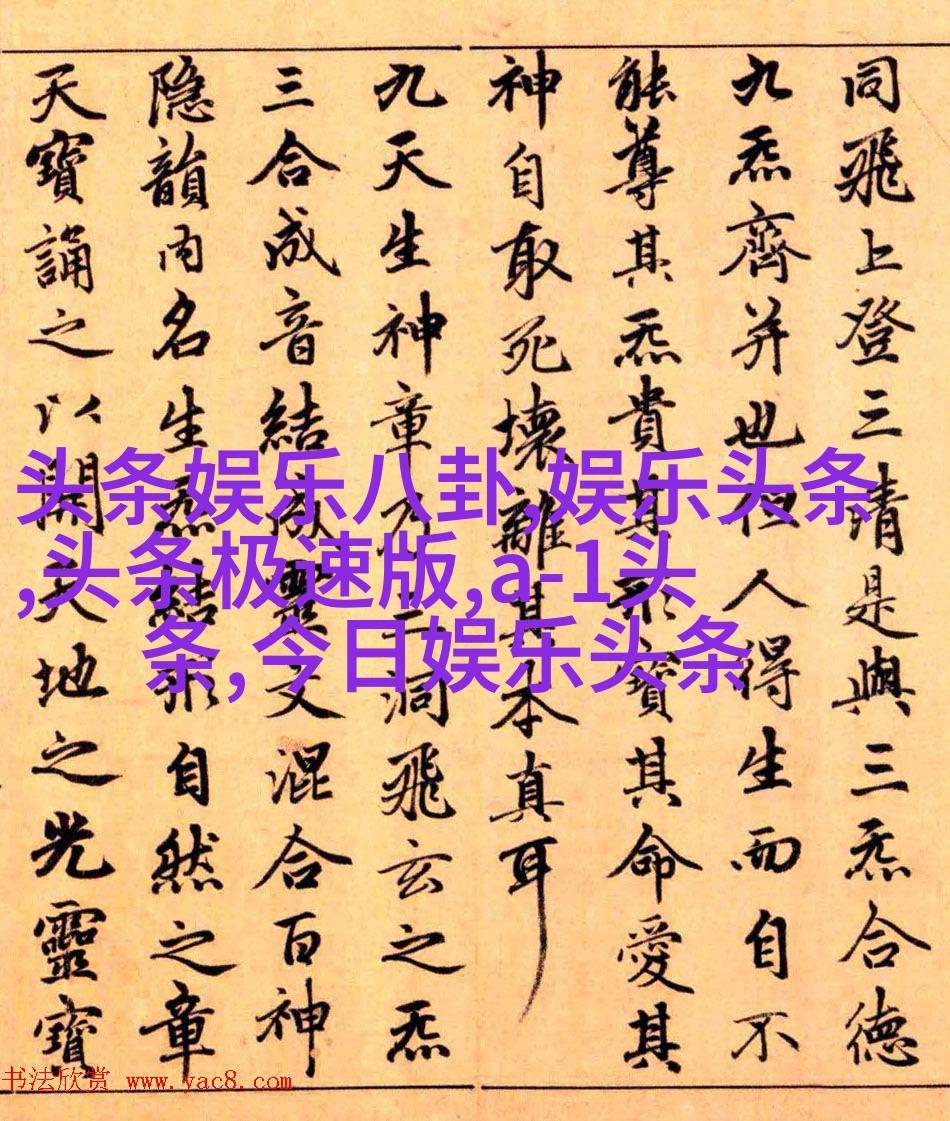 同飛上登三清是與三炁合德
九炁齊并也但人得生而自不
能尊其炁貴其形寶其命愛其
神自取死壞離其本真耳
九天生神章乃三洞飛玄之炁
三合成音結成靈文混合百神
隐韻内名生炁結形自然之章
天寶誦之以開天地之光靈寶
头条娱乐八卦,娱乐头条
,头条极速版,a-1头
条,今日娱乐头条
书法欣赏 www.yac8.com